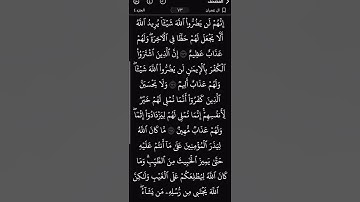 آل عمران ٧٣ الجزء ٤
إِنَّهُمْ لَن يَضُرُّوا۟ ٱللَّهَ شَيْـًٔا ۗ يُرِيدُ ٱللَّهُ
أَلَّا يَجْعَلَ لَهُمْ حَظًّا فِى ٱلْـَٔاخِرَةِ ۖ وَلَهُمْ
عَذَابٌ عَظِيمٌ ۝ إِنَّ ٱلَّذِينَ ٱشْتَرَوُا۟
ٱلْكُفْرَ بِٱلْإِيمَـٰنِ لَن يَضُرُّوا۟ ٱللَّهَ شَيْـًٔا
وَلَهُمْ عَذَابٌ أَلِيمٌ ۝ وَلَا يَحْسَبَنَّ
ٱلَّذِينَ كَفَرُوٓا۟ أَنَّمَا نُمْلِى لَهُمْ خَيْرٌ
لِّأَنفُسِهِمْ ۚ إِنَّمَا نُمْلِى لَهُمْ لِيَزْدَادُوٓا۟ إِثْمًا ۚ
وَلَهُمْ عَذَابٌ مُّهِينٌ ۝ مَّا كَانَ ٱللَّهُ
لِيَذَرَ ٱلْمُؤْمِنِينَ عَلَىٰ مَآ أَنتُمْ عَلَيْهِ
حَتَّىٰ يَمِيزَ ٱلْخَبِيثَ مِنَ ٱلطَّيِّبِ ۗ وَمَا
كَانَ ٱللَّهُ لِيُطْلِعَكُمْ عَلَى ٱلْغَيْبِ وَلَـٰكِنَّ
ٱللَّهَ يَجْتَبِى مِن رُّسُلِهِۦ مَن يَشَآءُ ۖ